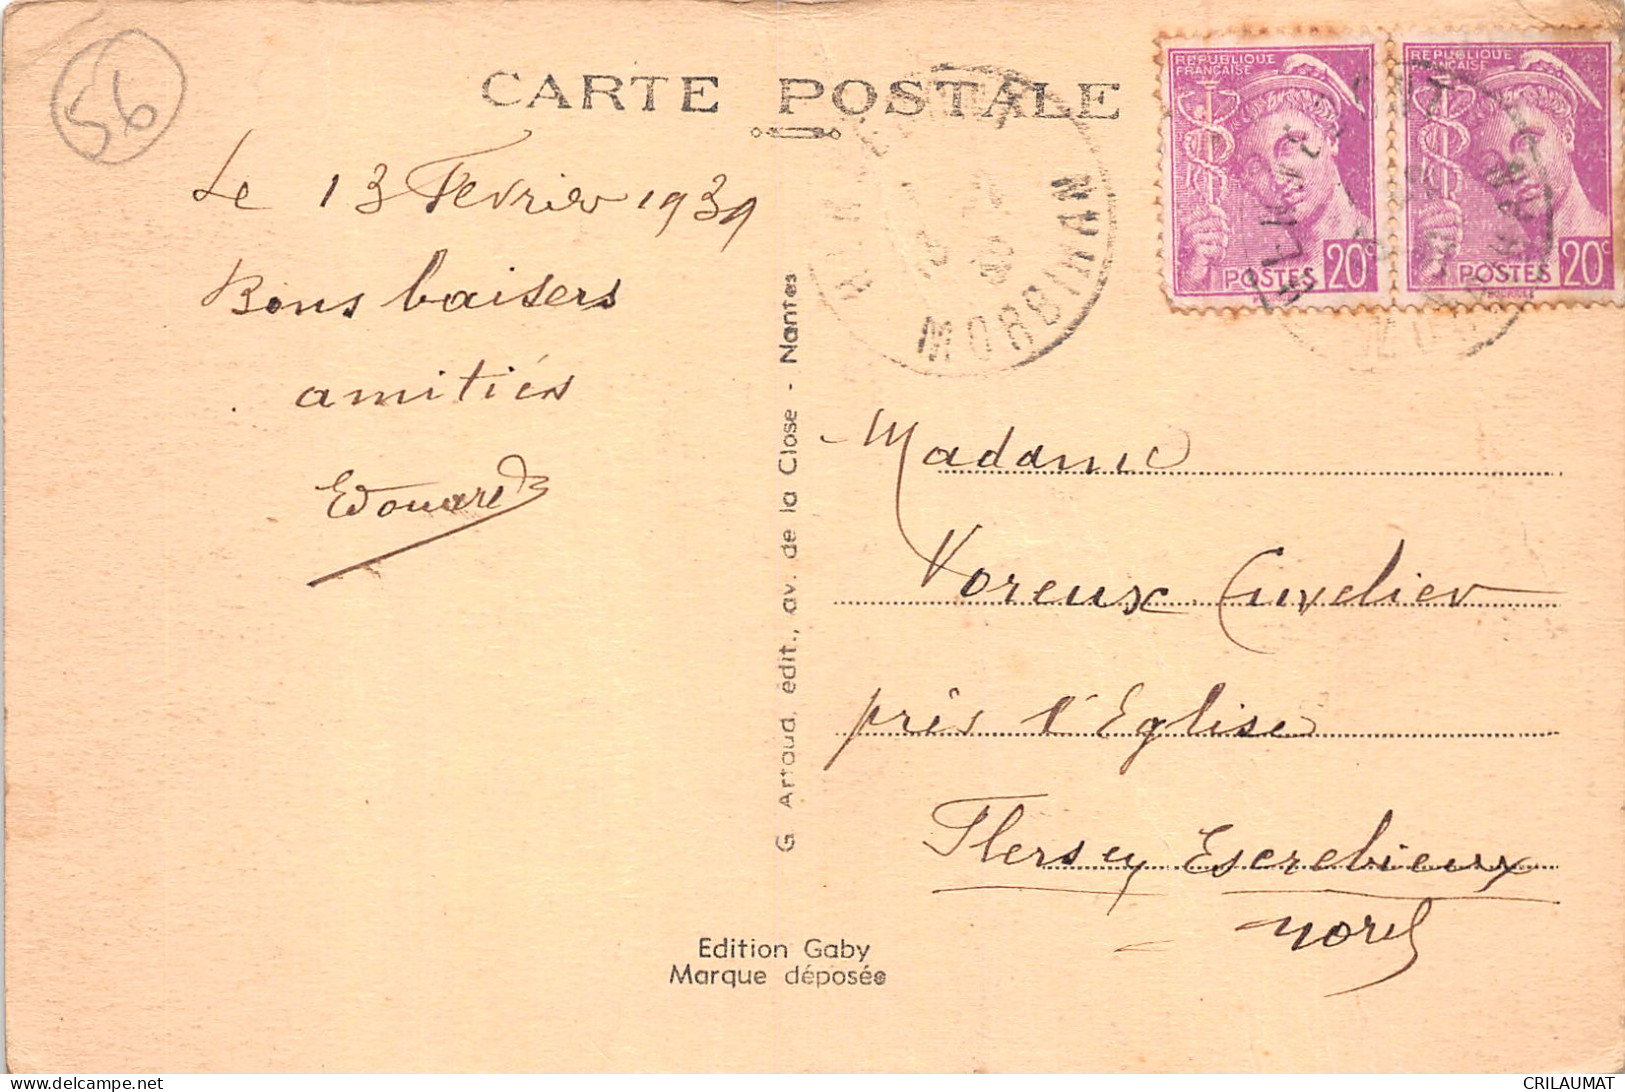 56
CARTE POSTALE
REPUBLIQUE
FRANÇAISE
POSTES 20c
REPUBLIQUE
FRANÇAISE
POSTES 20c
MORBIHAN
Le 13 Fevrier 1939
Bons baisers
amitiés
Edouard
G. Artaud, édit., av. de la Close - Nantes
Madame
Voreux Cuvelier
près l'Eglise
Flers en Escrebieux
Nord
Edition Gaby
Marque déposée
CRILAUMAT